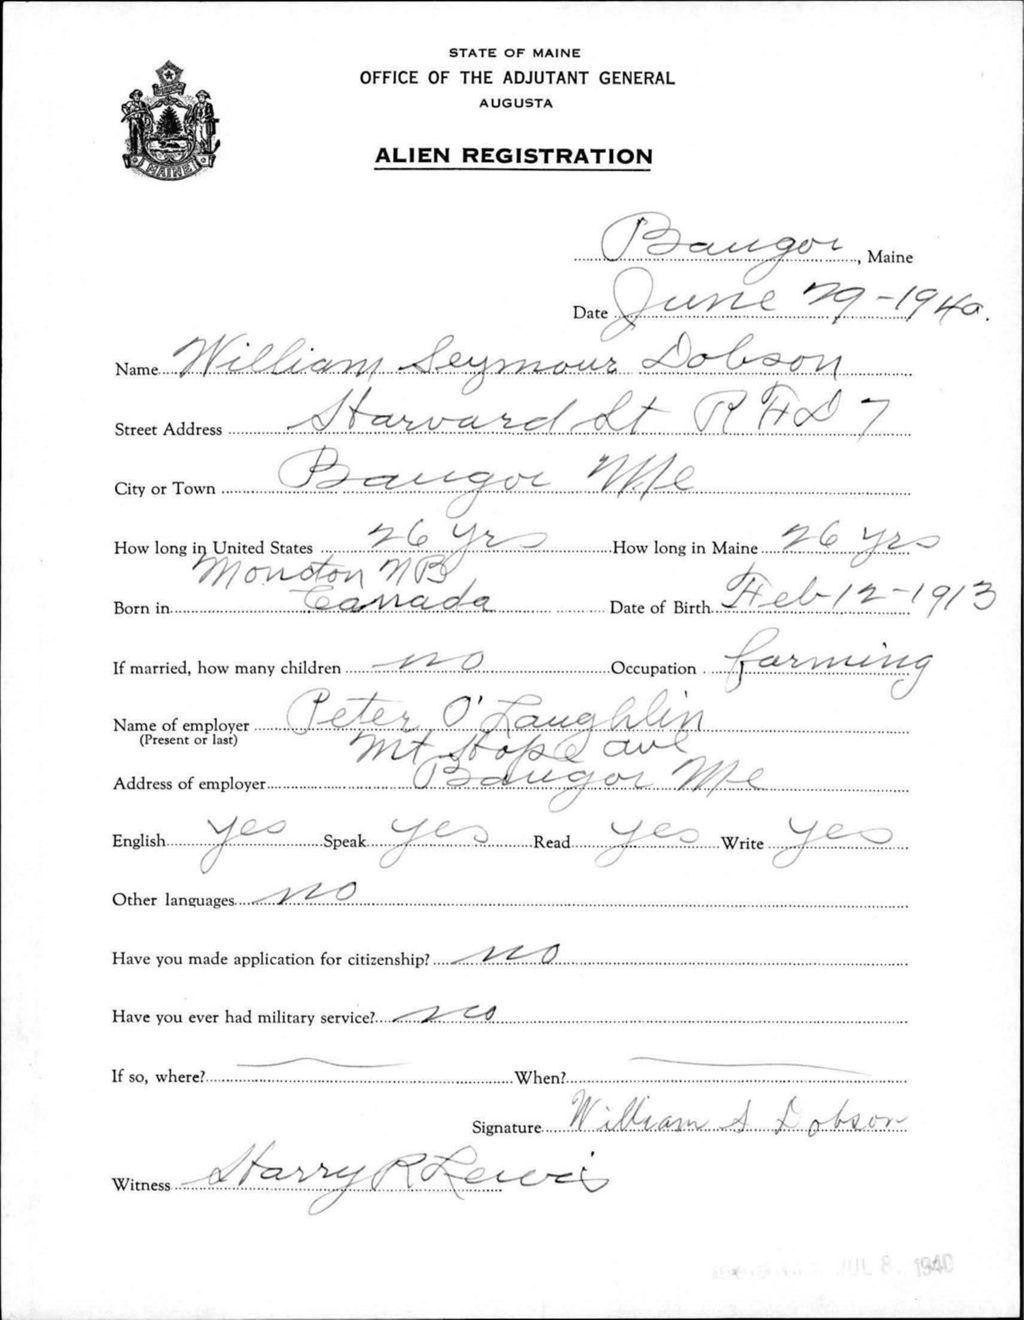 STATE OF MAINE
OFFICE OF THE ADJUTANT GENERAL
AUGUSTA
ALIEN REGISTRATION
MAINE
Bangor, Maine
Date June 29-1940.
Name William Seymour Dobson
Street Address Harvard St R F D 7
City or Town Bangor Me
How long in United States 26 yrs How long in Maine 26 yrs
Moncton NB
Born in Canada Date of Birth Feb-12-1913
If married, how many children no Occupation farming
Name of employer Peter O'Laughlin
(Present or last)
Mt Hope ave
Address of employer Bangor Me
English yes Speak yes Read yes Write yes
Other languages no
Have you made application for citizenship? no
Have you ever had military service? no
If so, where? When?
Signature William S Dobson
Witness Harry R Lewis
JUL 8 1940